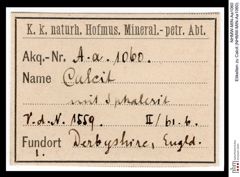 K. k. naturh. Hofmus. Mineral.-petr. Abt.
Akq.-Nr. A.a. 1060.
Name Calcit
mit Sphalerit
V.d.N. 1559. II/61.6.
Fundort Derbyshire, Engld.
1.